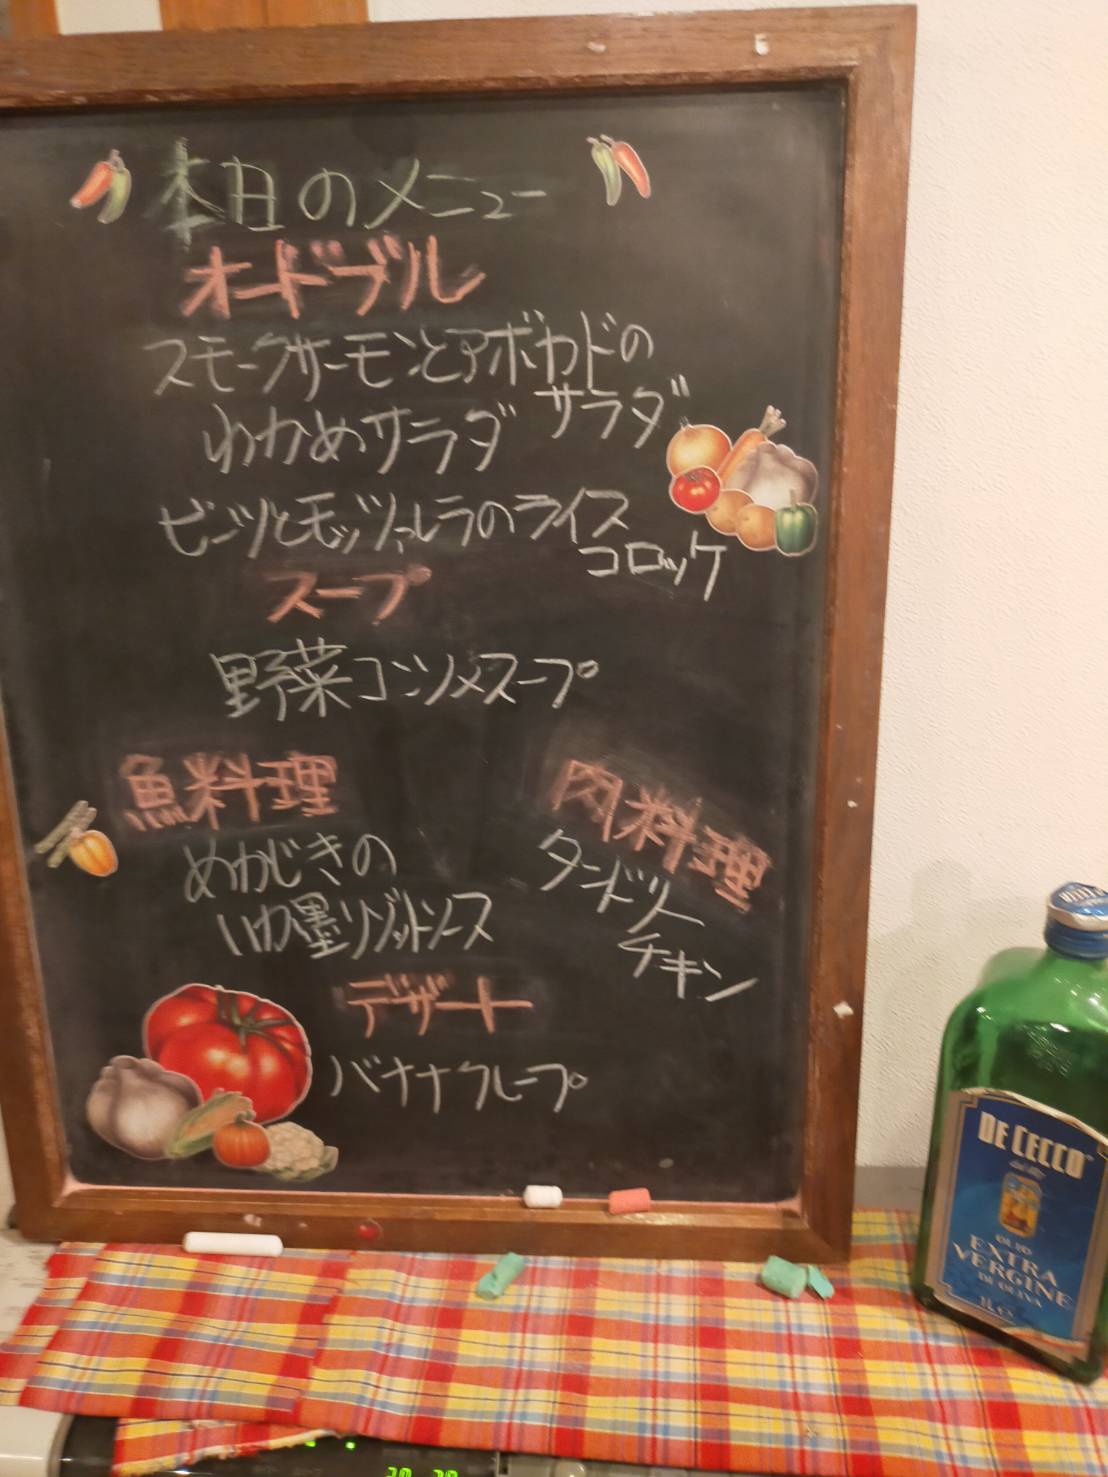 本日のメニュー
オードブル
スモークサーモンとアボカドの
サラダ
わかめサラダ
ビーンズとモッツァレラのライス
コロッケ
スープ
野菜コンソメスープ
魚料理
めかじきの
いか墨リゾットソース
肉料理
タンドリー
チキン
デザート
バナナクレープ
DE CECCO
OLIO
EXTRA
VERGINE
DI OLIVA